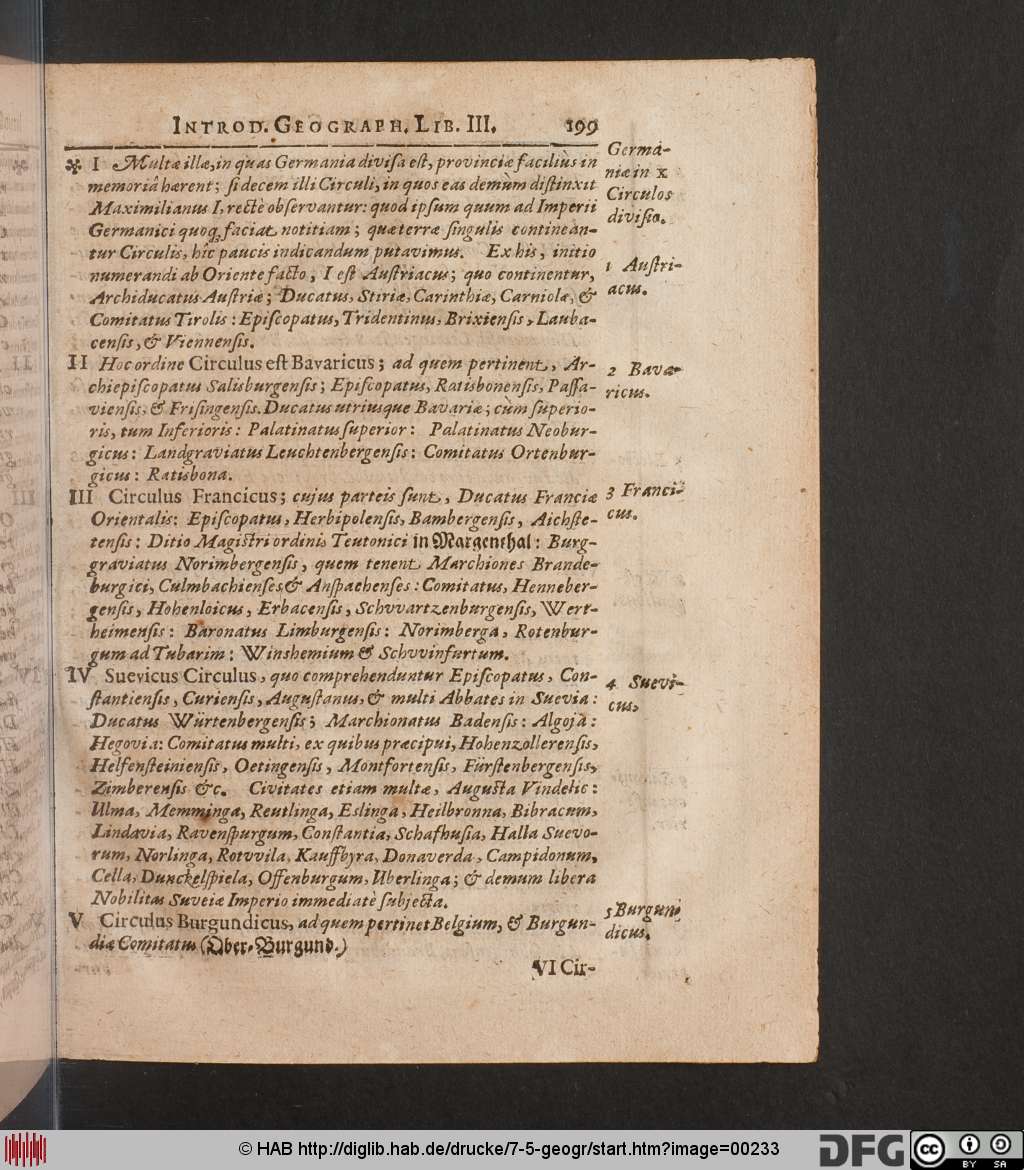 INTROD. GEOGRAPH. LIB. III. 199
✼ I Multæ illæ, in quas Germania divisa est, provinciæ faciliùs in
memoriâ hærent; si decem illi Circuli, in quos eas demùm distinxit
Maximilianus I, rectè observantur: quod ipsum quum ad Imperii
Germanici quoq; faciat notitiam; quæ terræ singulis contineàn-
tur Circulis, hîc paucis indicandum putavimus. Ex his, initio
numerandi ab Oriente facto, I est Austriacus; quo continentur,
Archiducatus Austriæ; Ducatus, Stiriæ, Carinthiæ, Carniolæ, &
Comitatus Tirolis: Episcopatus, Tridentinus, Brixiensis, Lauba-
censis, & Viennensis.
II Hoc ordine Circulus est Bavaricus; ad quem pertinent, Ar-
chiepiscopatus Salisburgensis; Episcopatus, Ratisbonensis, Passa-
viensis, & Frisingensis. Ducatus utriusque Bavariæ; cùm superio-
ris, tum Inferioris: Palatinatus superior: Palatinatus Neobur-
gicus: Landgraviatus Leuchtenbergensis: Comitatus Ortenbur-
gicus: Ratisbona.
III Circulus Francicus; cujus parteis sunt, Ducatus Franciæ
Orientalis: Episcopatus, Herbipolensis, Bambergensis, Aichste-
tensis: Ditio Magistri ordinis Teutonici in Margenthal: Burg-
graviatus Norimbergensis, quem tenent Marchiones Brande-
burgici, Culmbachienses & Anspachenses: Comitatus, Henneber-
gensis, Hohenloicus, Erbacensis, Schvvartzenburgensis, Wert-
heimensis: Baronatus Limburgensis: Norimberga, Rotenbur-
gum ad Tubarim: Winshemium & Schvvinfurtum.
IV Suevicus Circulus, quo comprehenduntur Episcopatus, Con-
stantiensis, Curiensis, Augustanus, & multi Abbates in Suevia:
Ducatus Würtenbergensis; Marchionatus Badensis: Algoja:
Hegovia: Comitatus multi, ex quibus præcipui, Hohenzollerensis,
Helfensteiniensis, Oetingensis, Montfortensis, Fürstenbergensis,
Zimberensis &c. Civitates etiam multæ, Augusta Vindelic:
Ulma, Memminga, Reutlinga, Eslinga, Heilbronna, Bibracum,
Lindavia, Ravenspurgum, Constantia, Schafhusia, Halla Suevo-
rum, Norlinga, Rotvvila, Kauffbyra, Donaverda, Campidonum,
Cella, Dunckelspiela, Offenburgum, Uberlinga; & demum libera
Nobilitas Suveiæ Imperio immediatè subjecta.
V Circulus Burgundicus, ad quem pertinet Belgium, & Burgun-
diæ Comitatus (Ober-Burgund.)
VI Cir-
Germa-
niæ in X
Circulos
divisio.
1 Austri-
acus.
2 Bava-
ricus.
3 Franci-
cus.
4 Suevi-
cus,
5 Burgun
dicus.
© HAB http://diglib.hab.de/drucke/7-5-geogr/start.htm?image=00233
DFG
cc
BY SA